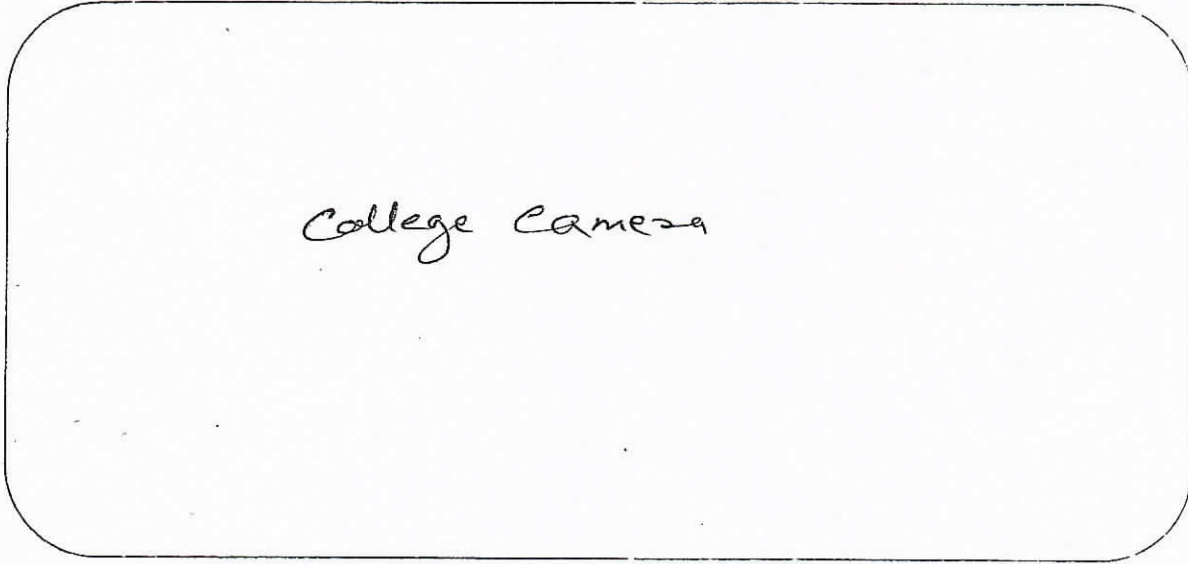 College Camera